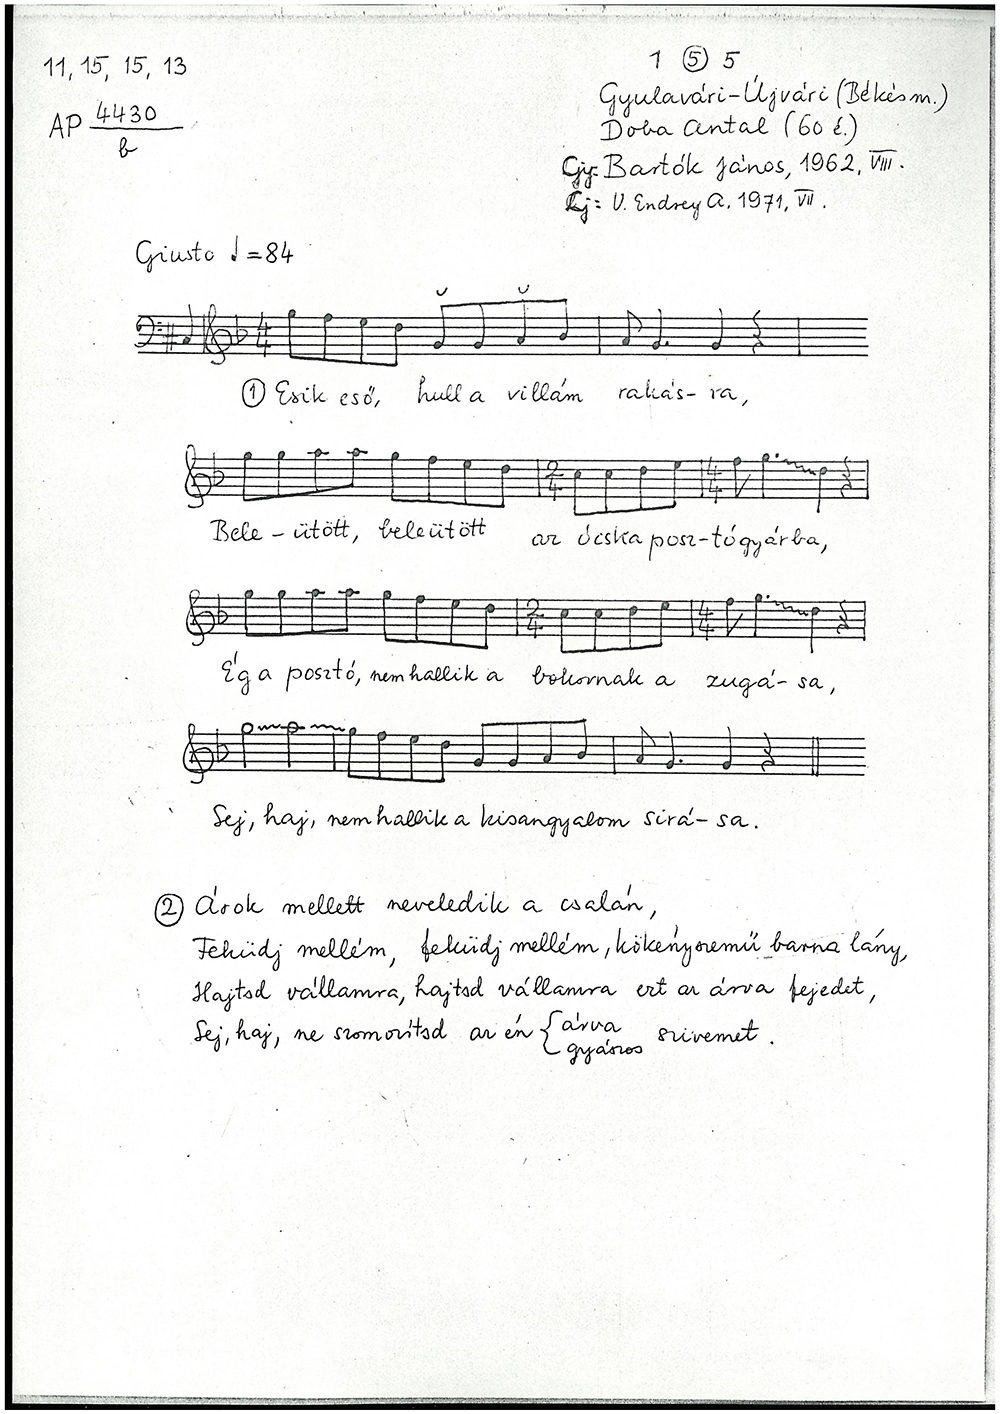 11, 15, 15, 13
1 ⑤ 5
AP 4430
b
Gyulavári-Újvári (Békés m.)
Doba Antal (60 é.)
Gy: Bartók János, 1962, VIII.
Lj: V. Endrey A. 1971, VII.
Giusto ♩=84
4
4
① Esik eső, hull a villám rakás-ra,
2
4
4
4
Bele-ütött, beleütött az ócska posz-tógyárba,
2
4
4
4
Ég a posztó, nem hallik a bokornak a zugá-sa,
Sej, haj, nem hallik a kisangyalom sirá-sa.
② Árok mellett neveledik a csalán,
Feküdj mellém, feküdj mellém, kökényszemű barna lány,
Hajtsd vállamra, hajtsd vállamra ezt az árva fejedet,
Sej, haj, ne szomorítsd az én { árva
gyászos szivemet.